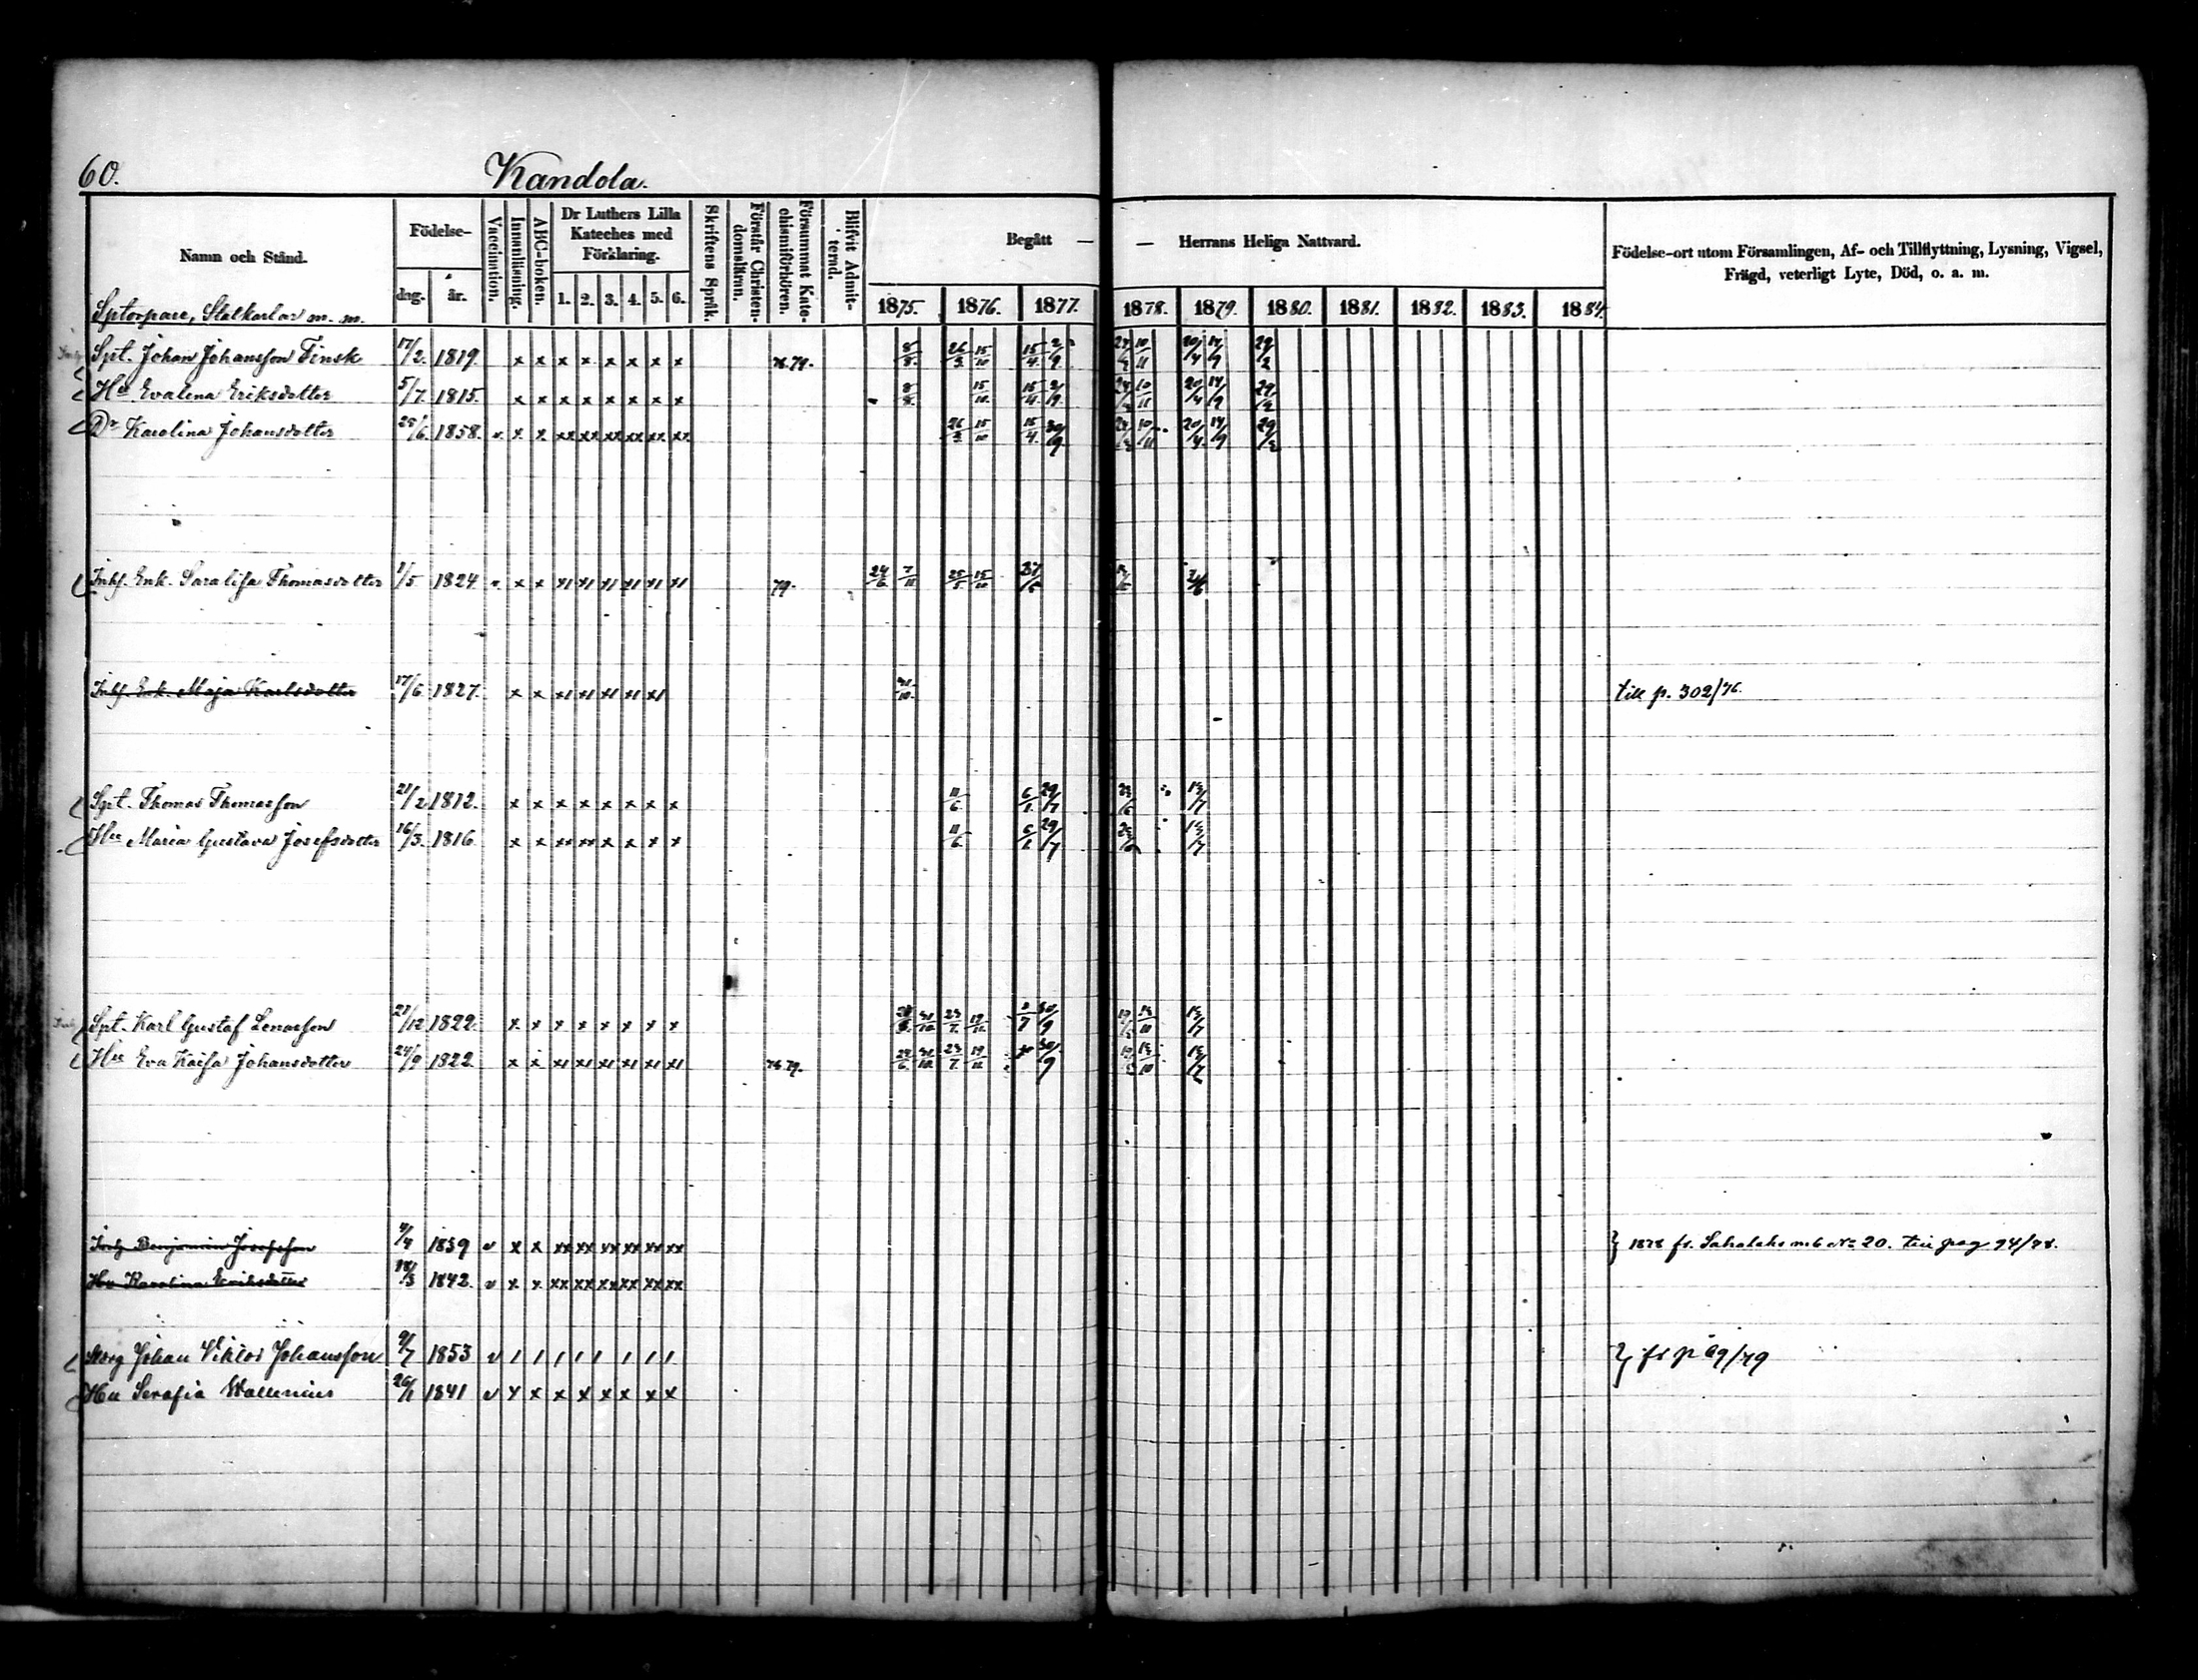 60.
Kandola.
Namn och Stånd.
Födelse-
dag.
år.
Vaccination.
Innanläsning.
ABC-boken.
Dr Luthers Lilla
Kateches med
Förklaring.
1. 2. 3. 4. 5. 6.
Skriftens Språk.
Förstår Christen-
domslänn.
Försummat Kate-
chismiförhören.
Blifvit Admit-
terad.
Begått — — Herrans Heliga Nattvard.
1875. 1876. 1877. 1878. 1879. 1880. 1881. 1882. 1883. 1884.
Födelse-ort utom Församlingen, Af- och Tillflyttning, Lysning, Vigsel,
Frägd, veterligt Lyte, Död, o. a. m.
Sptorpare, Statkarlar m. m.
Spt. Johan Johansson Finsk 17/2. 1819. x x x x x x x x 76.79. 8/8. 26/3. 15/10 15/4. 2/9 10/11 20/4 14/9 29/2
Hu Evalena Eriksdotter 5/7. 1815. x x x x x x x x 8/8. 15/10. 15/4. 2/9. 10/11 20/4 14/9 29/2
Dr Karolina Johansdotter 25/6. 1858. v. x x xx xx xx xx xx xx 26/3. 15/10 15/4. 30/9 10/11 20/4 14/9 29/2
Inhs. Enk. Saralisa Thomasdotter 1/5 1824 v. x x x1 x1 x1 x1 x1 x1 79. 24/6 7/11 25/5 15/10
Inhs. Enk. Maja Karlsdotter 17/6 1827. x x x1 x1 x1 x1 x1 31/10. till p. 302/76.
Spt. Thomas Thomasson 21/2. 1812. x x x x x x x x 11/6. 6/1. 29/7
Hu Maria Gustava Josefsdotter 16/3. 1816. x x xx xx x x x x 11/6. 6/1. 29/7
Spt. Karl Gustaf Lenasson 27/12 1822. x x x x x x x x 31/10. 23/7. 19/11. 2/7 30/9
Hu Eva Kaisa Johansdotter 24/9 1822. x x x1 x1 x1 x1 x1 x1 76.79. 31/10. 23/7. 19/11 30/9
Benjamin Josefsson 4/4 1859 v x x xx xx xx xx xx xx } 1878 fr. N:o 20. till pag. 94/78.
Hu Karolina Eriksdotter 18/3 1842. v x x xx xx xx xx xx xx
Johan Viktor Johansson 9/7 1853 v 1 1 1 1 1 1 1 1 } fr p 69/79
Hu Serafia Wallenius 26/1 1841 v x x x x x x x x